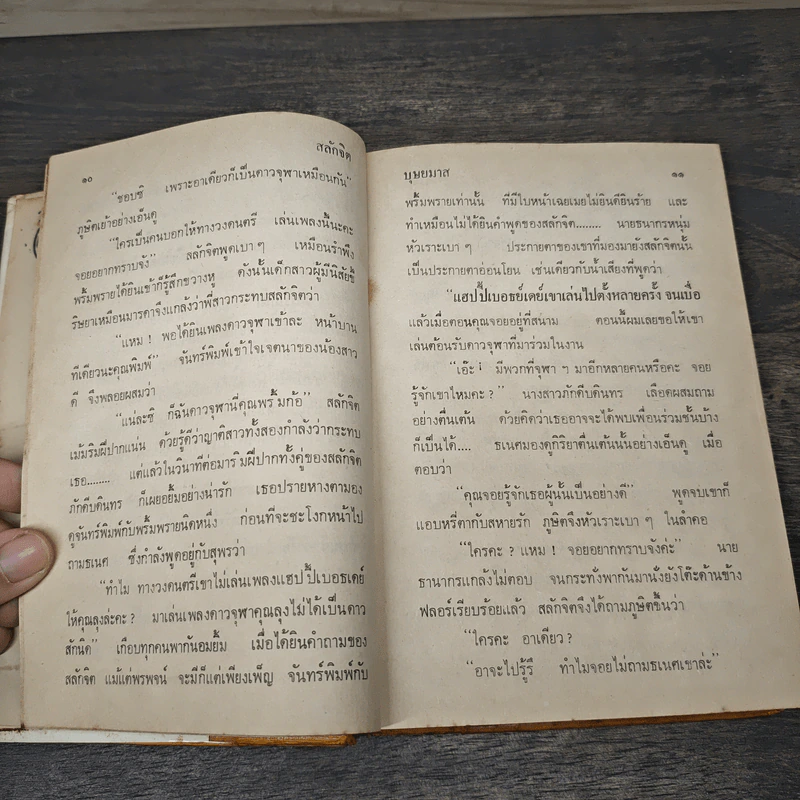 ๑๐
สลักจิต
“ชอบซิ เพราะอาเดียวก็เป็นดาวจุฬาเหมือนกัน”
ภูษิตเย้าอย่างเอ็นดู
“ใครเป็นคนบอกให้ทางวงดนตรี เล่นเพลงนี้นะคะ
จอยอยากทราบจัง” สลักจิตพูดเบา ๆ เหมือนรำพึง
พร้มพรายได้ยินเข้าก็รู้สึกขวางหู ดังนั้นเด็กสาวผู้มีนิสัยขี้
ริษยาเหมือนมารดาจึงแกล้งว่าพี่สาวกระทบสลักจิตว่า
“แหม! พอได้ยินเพลงดาวจุฬาเข้าละ หน้าบาน
ทีเดียวนะคุณพิมพ์” จันทร์พิมพ์เข้าใจเจตนาของน้องสาว
ดี จึงพลอยผสมว่า
“แน่ละซิ ก็ฉันดาวจุฬานี่คุณพร้มก้อ” สลักจิต
เม้มริมฝีปากแน่น ด้วยรู้ดีว่าญาติสาวทั้งสองกำลังว่ากระทบ
เธอ........ แต่แล้วในวินาทีต่อมาริมฝีปากทั้งคู่ของสลักจิต
ภักดีบดินทร ก็เผยอยิ้มอย่างน่ารัก เธอปรายหางตามอง
ดูจันทร์พิมพ์กับพร้มพรายนิดหนึ่ง ก่อนที่จะชะโงกหน้าไป
ถามธเนศ ซึ่งกำลังพูดอยู่กับสุพรว่า
“ทำไม ทางวงดนตรีเขาไม่เล่นเพลงแฮปปี้เบอธเดย์
ให้คุณลุงล่ะคะ? มาเล่นเพลงดาวจุฬาคุณลุงไม่ได้เป็นดาว
สักนิด” เกือบทุกคนพากันอมยิ้ม เมื่อได้ยินคำถามของ
สลักจิต แม้แต่พรพจน์ จะมีก็แต่เพียงเพ็ญ จันทร์พิมพ์กับ
บุษยมาส
๑๑
พร้มพรายเท่านั้น ที่มีใบหน้าเฉยเมยไม่ยินดียินร้าย และ
ทำเหมือนไม่ได้ยินคำพูดของสลักจิต........ นายธนากรหนุ่ม
หัวเราะเบา ๆ ประกายตาของเขาที่มองมายังสลักจิตนั้น
เป็นประกายตาอ่อนโยน เช่นเดียวกับน้ำเสียงที่พูดว่า
“แฮปปี้เบอธย์เดย์เขาเล่นไปตั้งหลายครั้ง จนเบื่อ
แล้วเมื่อตอนคุณจอยอยู่ที่สนาม ตอนนี้ผมเลยขอให้เขา
เล่นต้อนรับดาวจุฬาที่มาร่วมในงาน
“เอ๊ะ! มีพวกที่จุฬา ๆ มาอีกหลายคนหรือคะ จอย
รู้จักเขาไหมคะ?” นางสาวภักดีบดินทร เลือดผสมถาม
อย่างตื่นเต้น ด้วยคิดว่าเธออาจจะได้พบเพื่อนร่วมชั้นบ้าง
ก็เป็นได้.... ธเนศมองดูกิริยาตื่นเต้นนั้นอย่างเอ็นดู เมื่อ
ตอบว่า
“คุณจอยรู้จักเธอผู้นั้นเป็นอย่างดี” พูดจบเขาก็
แอบหรี่ตากับสหายรัก ภูษิตจึงหัวเราะเบา ๆ ในลำคอ
“ใครคะ? แหม! จอยอยากทราบจังค่ะ” นาย
ธานากรแกล้งไม่ตอบ จนกระทั่งพากันมานั่งยังโต๊ะด้านข้าง
ฟลอร์เรียบร้อยแล้ว สลักจิตจึงได้ถามภูษิตขึ้นว่า
“ใครคะ อาเดียว?
“อาจะไปรู้รึ ทำไมจอยไม่ถามธเนศเขาล่ะ”